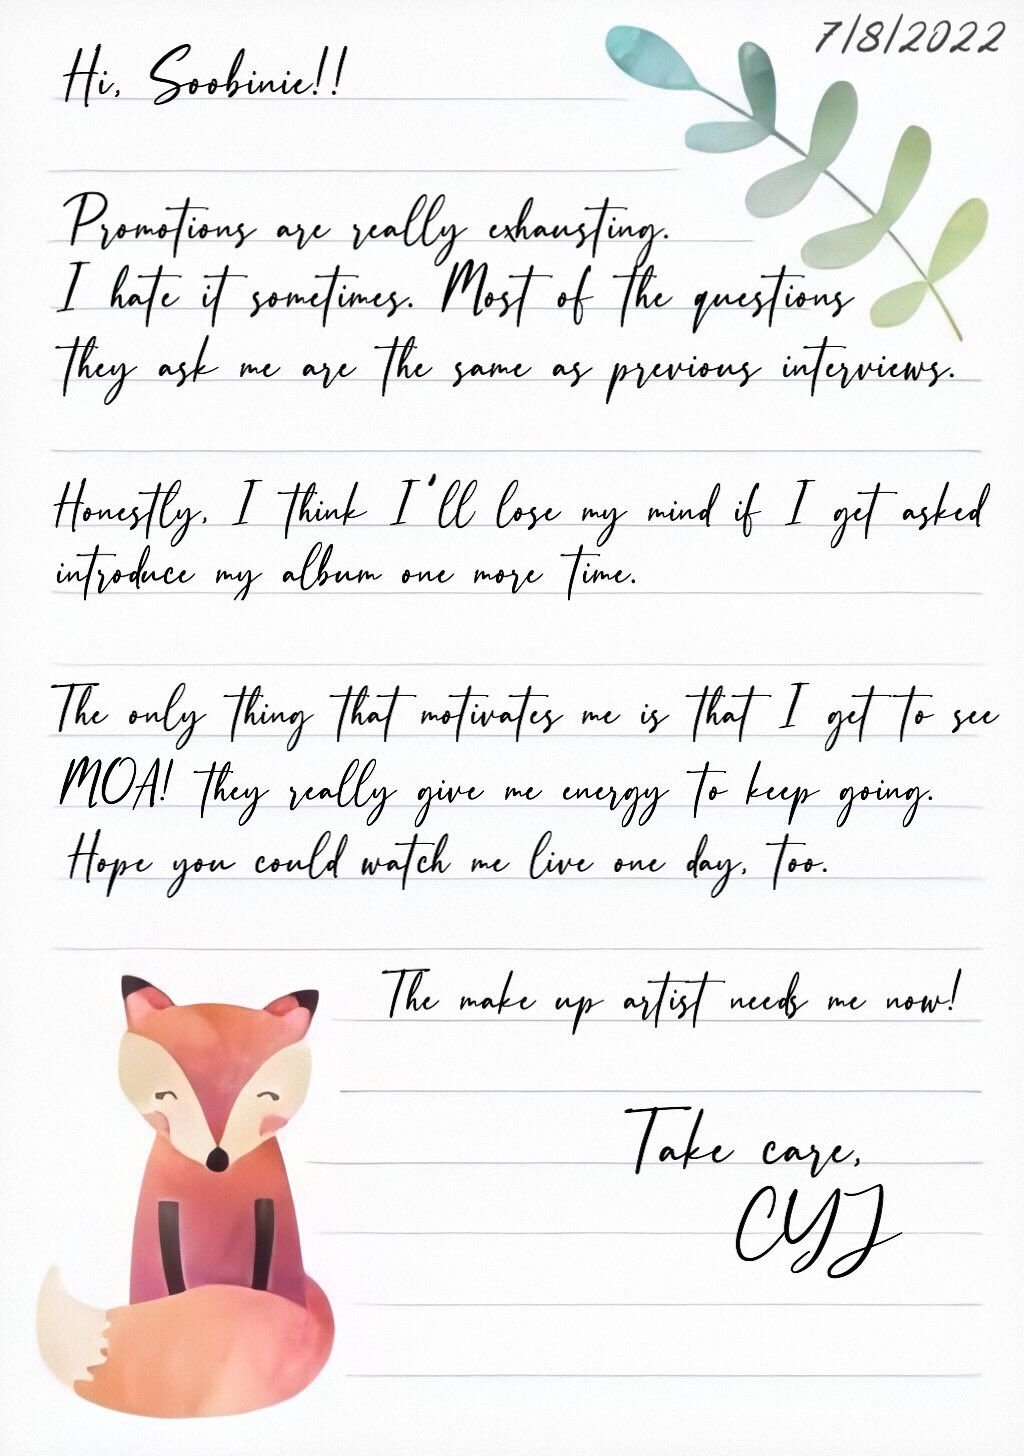 7/8/2022
Hi, Soobinie!!
Promotions are really exhausting.
I hate it sometimes. Most of the questions
they ask me are the same as previous interviews.
Honestly, I think I'll lose my mind if I get asked
introduce my album one more time.
The only thing that motivates me is that I get to see
MOA! they really give me energy to keep going.
Hope you could watch me live one day, too.
The make up artist needs me now!
Take care,
CYJ